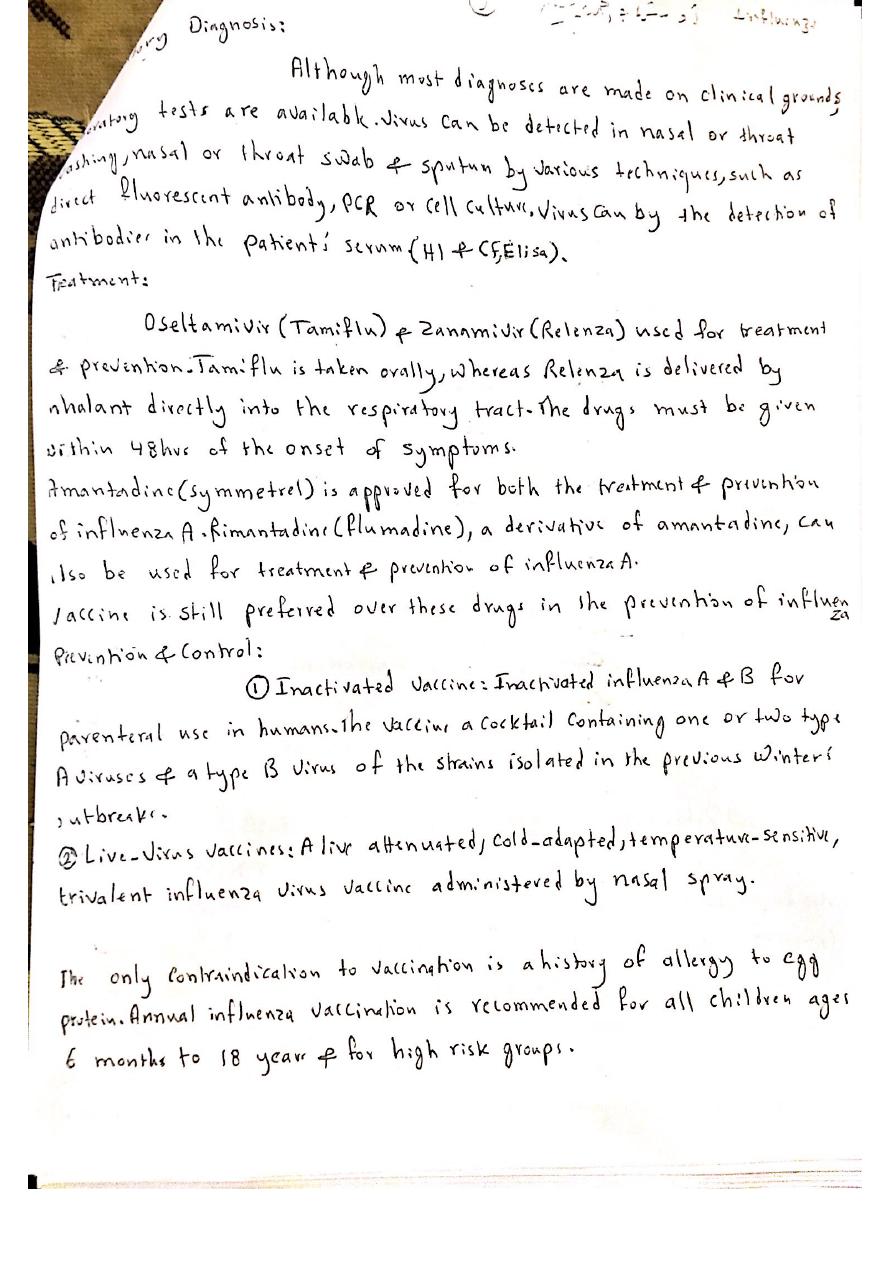 Influenza
ory Diagnosis:
Although most diagnoses are made on clinical grounds,
oratory tests are available. Virus can be detected in nasal or throat
ashing, nasal or throat swab & sputum by various techniques, such as
direct fluorescent antibody, PCR or cell culture. Virus can by the detection of
antibodies in the patient's serum (HI & CF, Elisa).
Teatment:
Oseltamivir (Tamiflu) & Zanamivir (Relenza) used for treatment
& prevention. Tamiflu is taken orally, whereas Relenza is delivered by
nhalant directly into the respiratory tract. The drugs must be given
within 48hrs of the onset of symptoms.
Amantadine (symmetrel) is approved for both the treatment & prevention
of influenza A. Rimantadine (flumadine), a derivative of amantadine, can
also be used for treatment & prevention of influenza A.
Vaccine is still preferred over these drugs in the prevention of influenza
Prevention & Control:
① Inactivated vaccine: Inactivated influenza A & B for
parenteral use in humans. The vaccine a cocktail containing one or two type
A viruses & a type B virus of the strains isolated in the previous winter's
outbreaks.
② Live-virus vaccines: A live attenuated, cold-adapted, temperature-sensitive,
trivalent influenza virus vaccine administered by nasal spray.
The only contraindication to vaccination is a history of allergy to egg
protein. Annual influenza vaccination is recommended for all children ages
6 months to 18 years & for high risk groups.